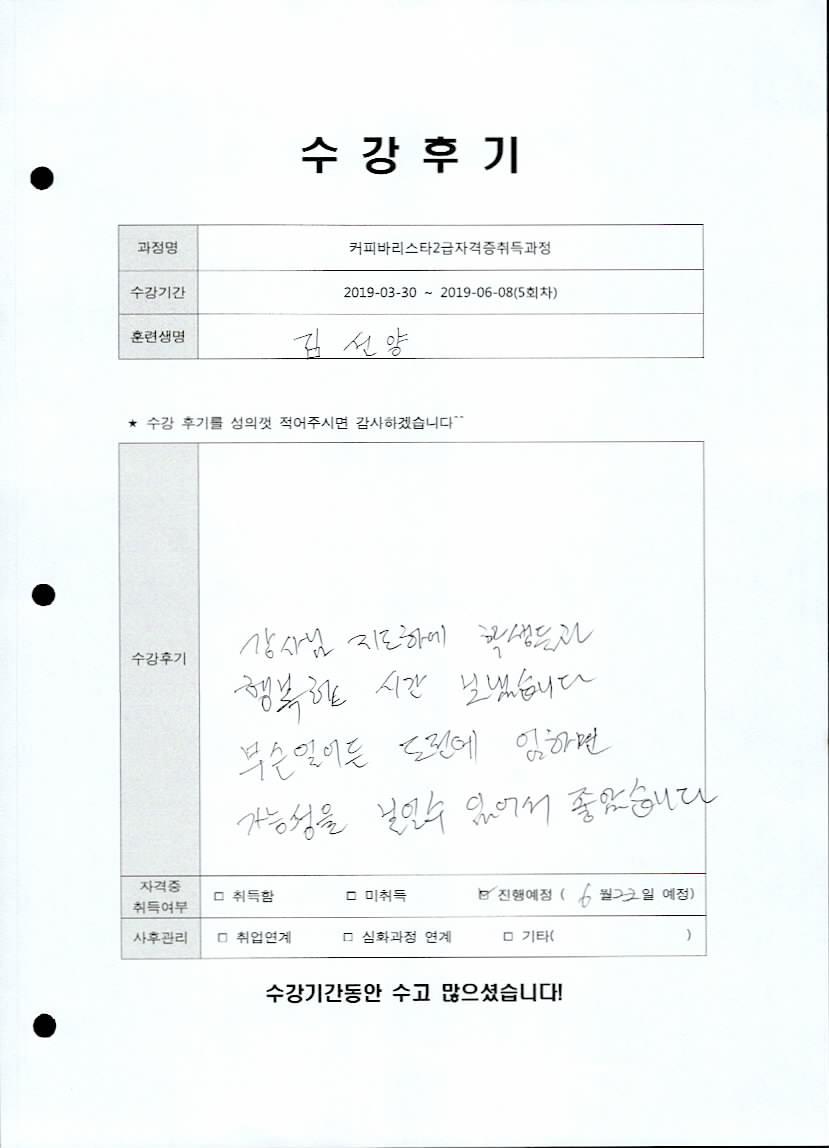 수 강 후 기
과정명 커피바리스타2급자격증취득과정
수강기간 2019-03-30 ~ 2019-06-08(5회차)
훈련생명 김 선 양
★ 수강 후기를 성의껏 적어주시면 감사하겠습니다^^
수강후기
강사님 지도하에 학생들과
행복한 시간 보냈습니다
무슨일이든 도전에 임하면
가능성을 보일수 있어서 좋았습니다
자격증 취득여부 □ 취득함 □ 미취득 ☑ 진행예정 ( 6 월 22 일 예정)
사후관리 □ 취업연계 □ 심화과정 연계 □ 기타( )
수강기간동안 수고 많으셨습니다!